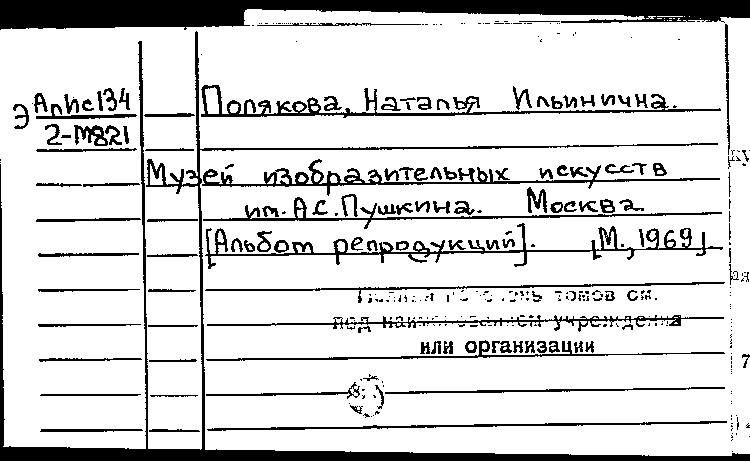 Э АпИс134
2-М821
Полякова, Наталья Ильинична.
Музей изобразительных искусств
им. А.С. Пушкина. Москва.
[Альбом репродукций]. [М., 1969].
томов см.
под наименованием учреждения
или организации
ку
ая
7